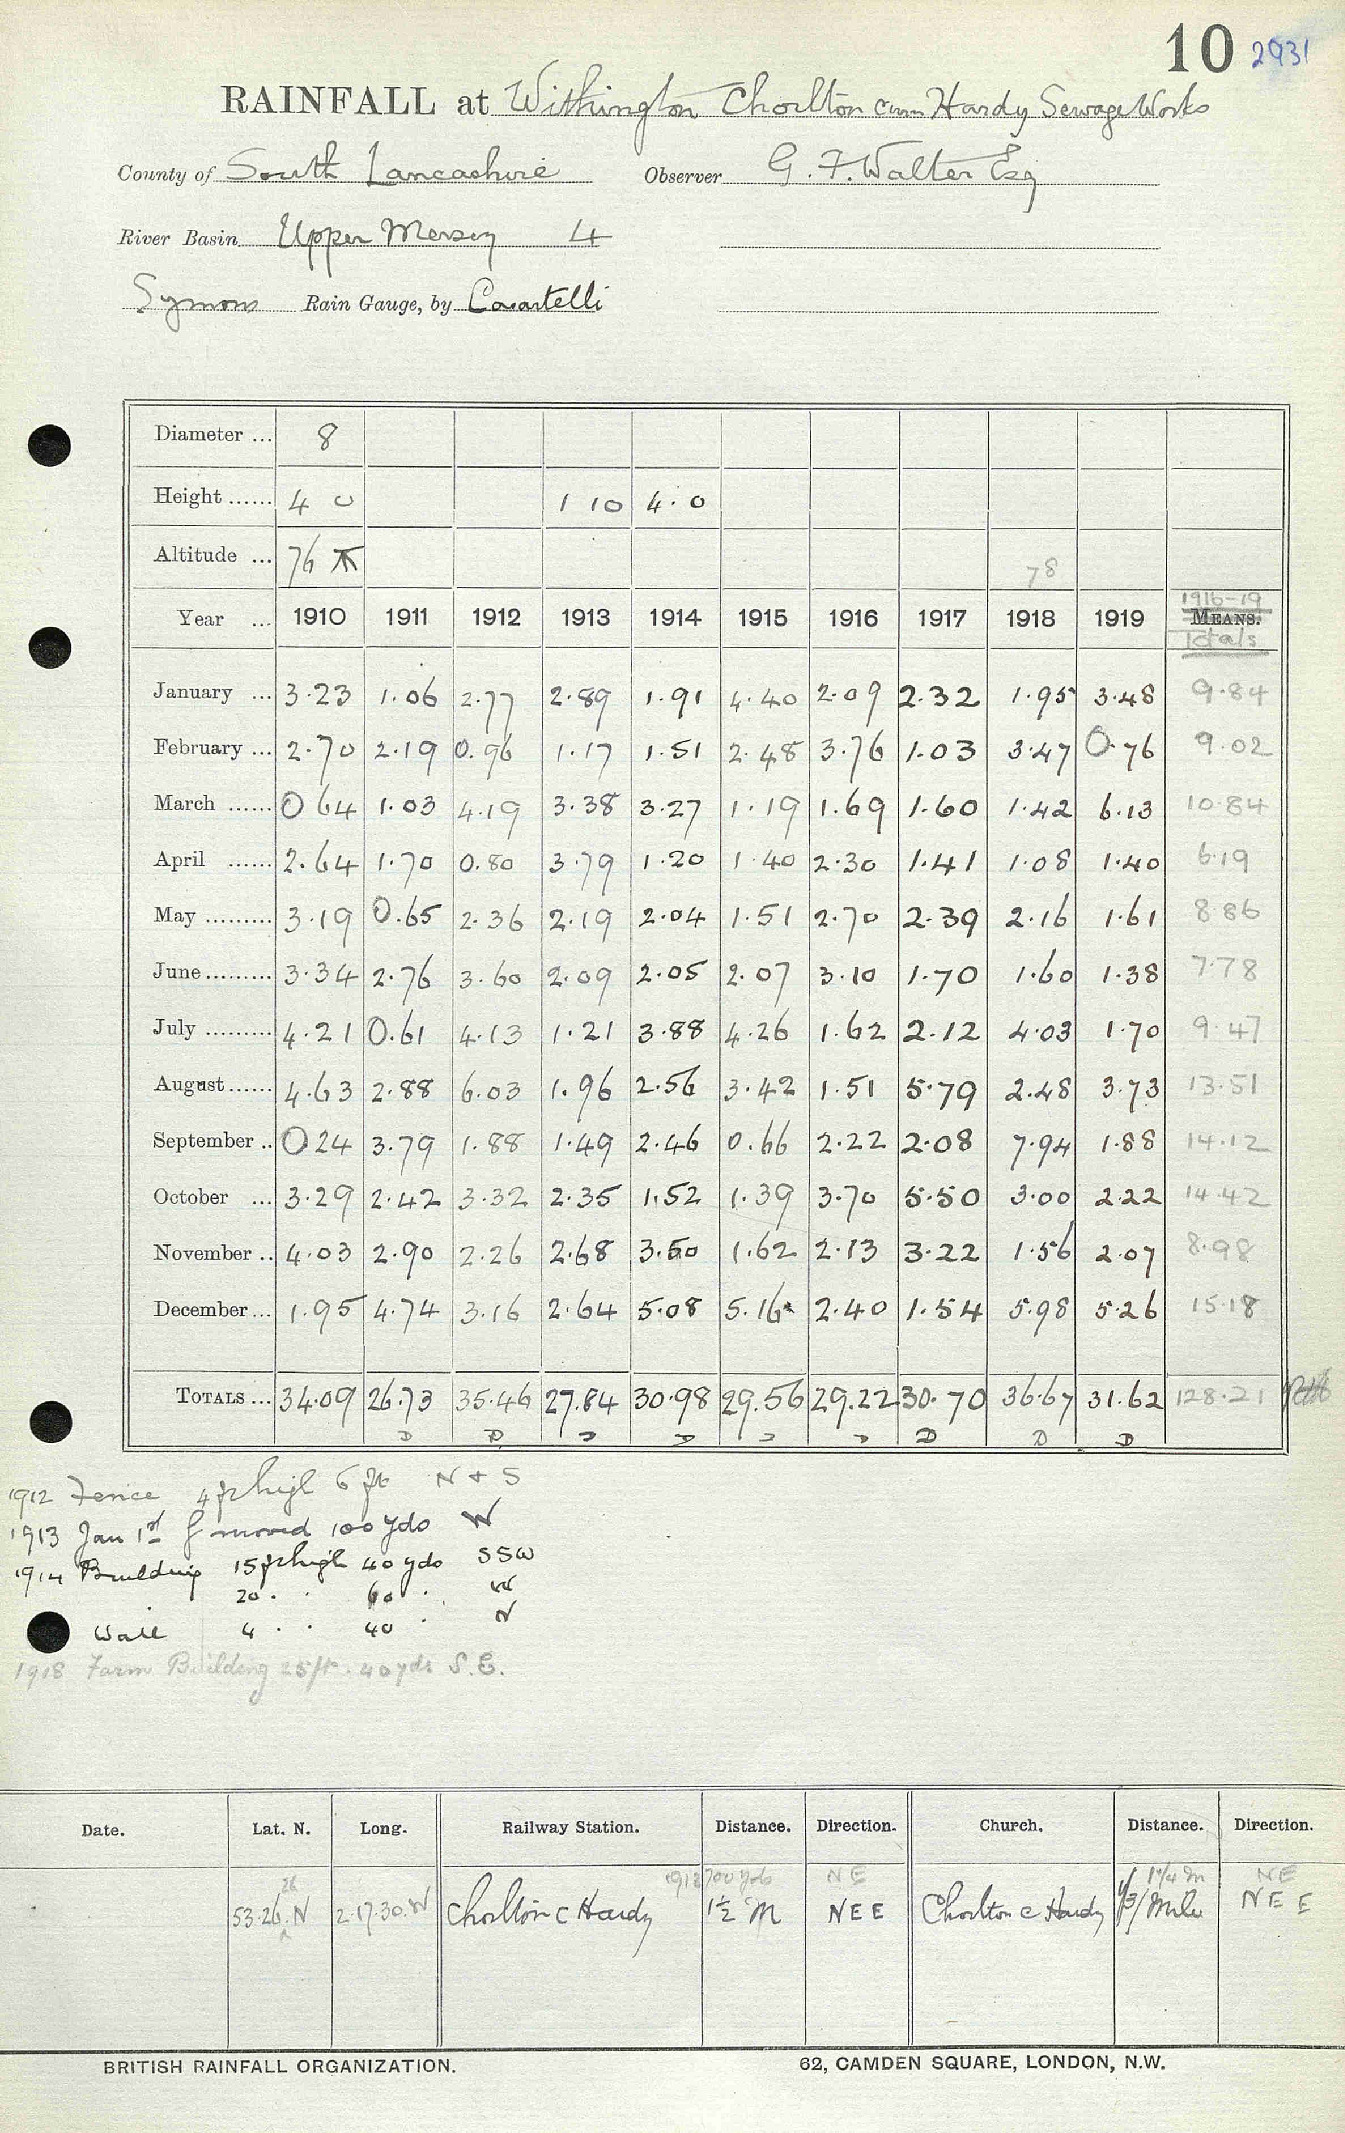 10 2931
RAINFALL at Withington Chorlton cum Hardy Sewage Works
County of South Lancashire Observer G. F. Walter Esq
River Basin Upper Mersey 4
Symons Rain Gauge, by Casartelli
Diameter ... 8
Height ...... 4 0 1 10 4.0
Altitude ... 76 78
1916-19
Year ... 1910 1911 1912 1913 1914 1915 1916 1917 1918 1919 MEANS.
Totals
January ... 3.23 1.06 2.77 2.89 1.91 4.40 2.09 2.32 1.95 3.48 9.84
February ... 2.70 2.19 0.96 1.17 1.51 2.48 3.76 1.03 3.47 0.76 9.02
March ...... 0 64 1.03 4.19 3.38 3.27 1.19 1.69 1.60 1.42 6.13 10.84
April ...... 2.64 1.70 0.80 3.79 1.20 1.40 2.30 1.41 1.08 1.40 6.19
May ......... 3.19 0.65 2.36 2.19 2.04 1.51 2.70 2.39 2.16 1.61 8.86
June ......... 3.34 2.76 3.60 2.09 2.05 2.07 3.10 1.70 1.60 1.38 7.78
July ......... 4.21 0.61 4.13 1.21 3.88 4.26 1.62 2.12 4.03 1.70 9.47
August ...... 4.63 2.88 6.03 1.96 2.56 3.42 1.51 5.79 2.48 3.73 13.51
September .. 0 24 3.79 1.88 1.49 2.46 0.66 2.22 2.08 7.94 1.88 14.12
October ... 3.29 2.42 3.32 2.35 1.52 1.39 3.70 5.50 3.00 2.22 14.42
November .. 4.03 2.90 2.26 2.68 3.50 1.62 2.13 3.22 1.56 2.07 8.98
December ... 1.95 4.74 3.16 2.64 5.08 5.16 2.40 1.54 5.98 5.26 15.18
TOTALS ... 34.09 26.73 35.46 27.84 30.98 29.56 29.22 30.70 36.67 31.62 128.21
D D D D D D D D D
1912 Fence 4 ft high 6 ft N + S
1913 Jan 1st g moved 100 yds W
1914 Building 15 ft high 40 yds SSW
20 . . 60 . W
Wall 4 . . 40 . N
1918 Farm Building 25 ft. 40 yds S.E.
Date. Lat. N. Long. Railway Station. Distance. Direction. Church. Distance. Direction.
28 1918 700 yds NE 1 1/4 m NE
53.26.N 2.17.30.W Chorlton c Hardy 1½ M NEE Chorlton c Hardy 1/3 Mile NEE
BRITISH RAINFALL ORGANIZATION. 62, CAMDEN SQUARE, LONDON, N.W.